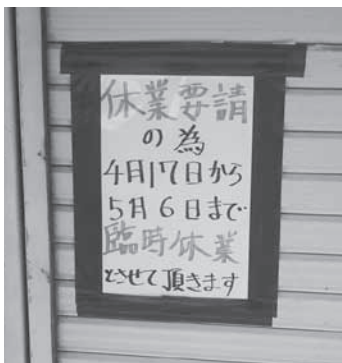 休業要請
の為
4月17日から
5月6日まで
臨時休業
とさせて頂きます